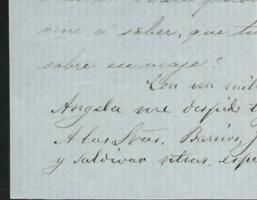 vine á saber, que tu
sobre ese viaje?
Con un mil
Angela me despid
A las Sras. Barrios,
y Saldivar